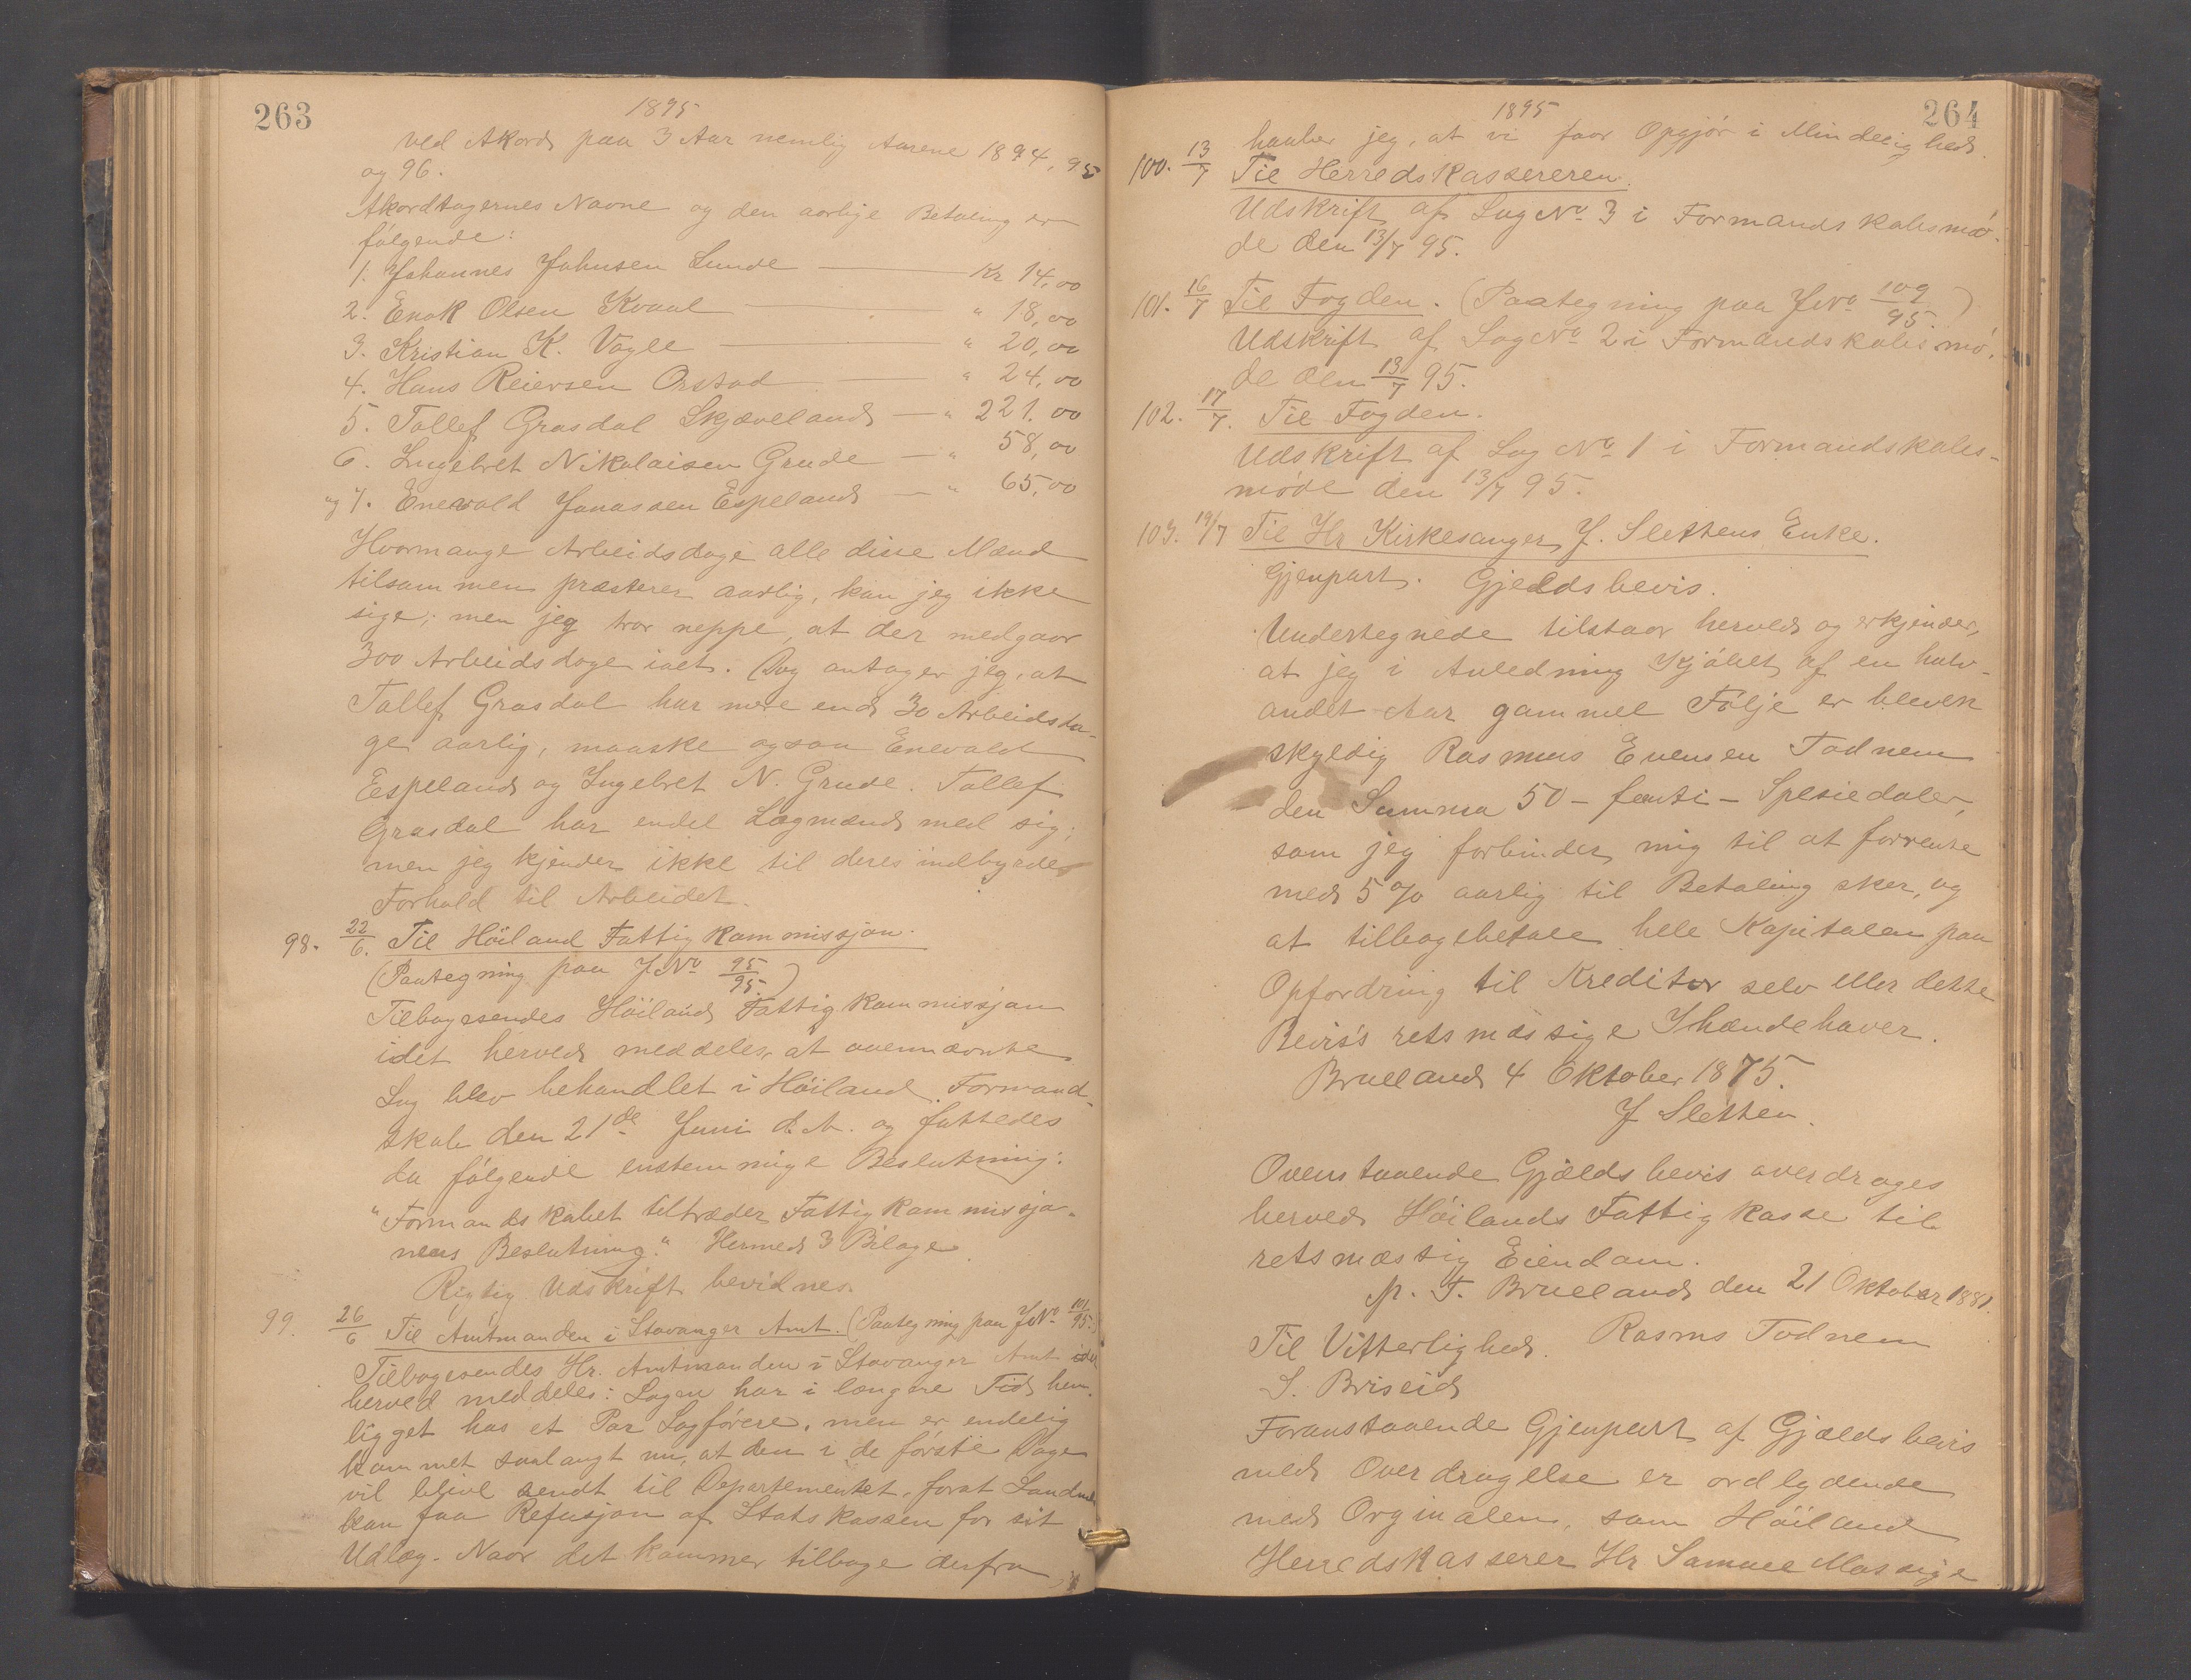 263
1895
ved Akord paa 3 Aar nemlig Aarene 1894, 95
og 96.
Akordtagernes Navne og den aarlige Betaling er
følgende:
1. Johannes Johnsen Lunde — Kr 14,00
2. Enok Olsen Kvaal — " 18,00
3. Kristian K. Vagle — " 20,00
4. Hans Reiersen Orstad — " 24,00
5. Tollef Grasdal Skjæveland — " 221.00
6. Ingebret Nikolaisen Grude — " 58,00
og 7. Enevald Jonassen Espeland — " 65,00
Hvormange Arbeidsdage alle disse Mænd
tilsammen præsterer aarlig, kan jeg ikke
sige; men jeg tror neppe, at der medgaar
300 Arbeidsdage ialt. Dog antager jeg, at
Tollef Grasdal har mere end 30 Arbeidsda-
ge aarlig, maaske ogsaa Enevald
Espeland og Ingebret N. Grude. Tollef
Grasdal har endel Lagmænd med sig;
men jeg kjender ikke til deres indbyrdes
Forhold til Arbeidet.
98. 22/6. Til Höiland Fattigkommissjon.
(Paategning paa J.No 95/95.)
Tilbagesendes Höiland Fattigkommissjon
idet herved meddeles, at ovennævnte
Sag blev behandlet i Höiland Formand-
skab den 21de Juni d. A. og fattedes
da følgende enstemmige Beslutning:
"Formandskabet tiltræder Fattigkommissjo-
nens Beslutning." Hermed 3 Bilage.
Rigtig Udskrift bevidnes.
99. 26/6 Til Amtmanden i Stavanger Amt. (Paategning paa J.No 101/95.)
Tilbagesendes Hr. Amtmanden i Stavanger Amt idet
herved meddeles: Sagen har i længere Tid hen-
ligget hos et Par Sagførere, men er endelig
kommet saalangt nu, at den i de første Dage
vil blive sendt til Departementet, forat
kan faa Refusjon af Statskassen for sit
Udlæg. Naar det kommer tilbage derfra
264
1895
haaber jeg, at vi faar Opgjør i Mindelighed.
100. 13/7 Til Herredskassereren.
Udskrift af Sag No 3 i Formandskabsmø-
de den 13/7 95.
101. 16/7 Til Fogden. (Paategning paa J.No 109/95.)
Udskrift af Sag No 2 i Formandskabsmø-
de den 13/7 95.
102. 17/7. Til Fogden.
Udskrift af Sag No 1 i Formandskabs-
møde den 13/7 95.
103. 19/7 Til Hr Kirkesanger J. Slettens Enke.
Gjenpart. Gjeldsbevis.
Undertegnede tilstaar herved og erkjender,
at jeg i Anledning Kjøbet af en halv-
andet Aar gammel Følje er bleven
skyldig Rasmus Evensen Todnem
den Summa 50 - femti - Spesiedaler,
som jeg forbinder mig til at forrente
med 5 % aarlig til Betaling sker, og
at tilbagebetale hele Kapitalen paa
Opfordring til Kreditor selv eller dette
Bevis's retsmæssige Ihændehaver.
Brueland 4 Oktober 1875.
J Sletten.
Ovenstaaende Gjældsbevis overdrages
herved Höilands Fattigkasse til
retsmæssig Eiendom.
p. t. Brueland den 21 Oktober 1881.
Til Vitterlighed. Rasms Todnem
S. Briseid
Foranstaaende Gjenpart af Gjældsbevis
med Overdragelse er ordlydende
med Orginalen, som Höiland
Herredskasserer Hr Samuel Mossige